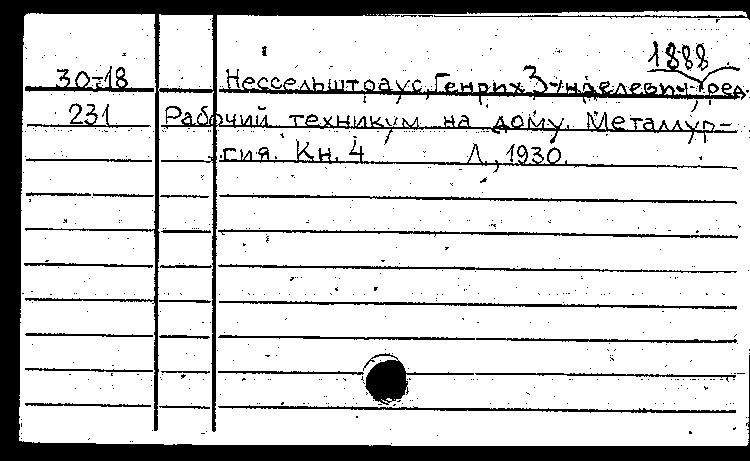 1888
30-18 Нессельштраус, Генрих З-унделевич, ред.
231 Рабочий техникум на дому. Металлур-
гия. Кн. 4 Л., 1930.